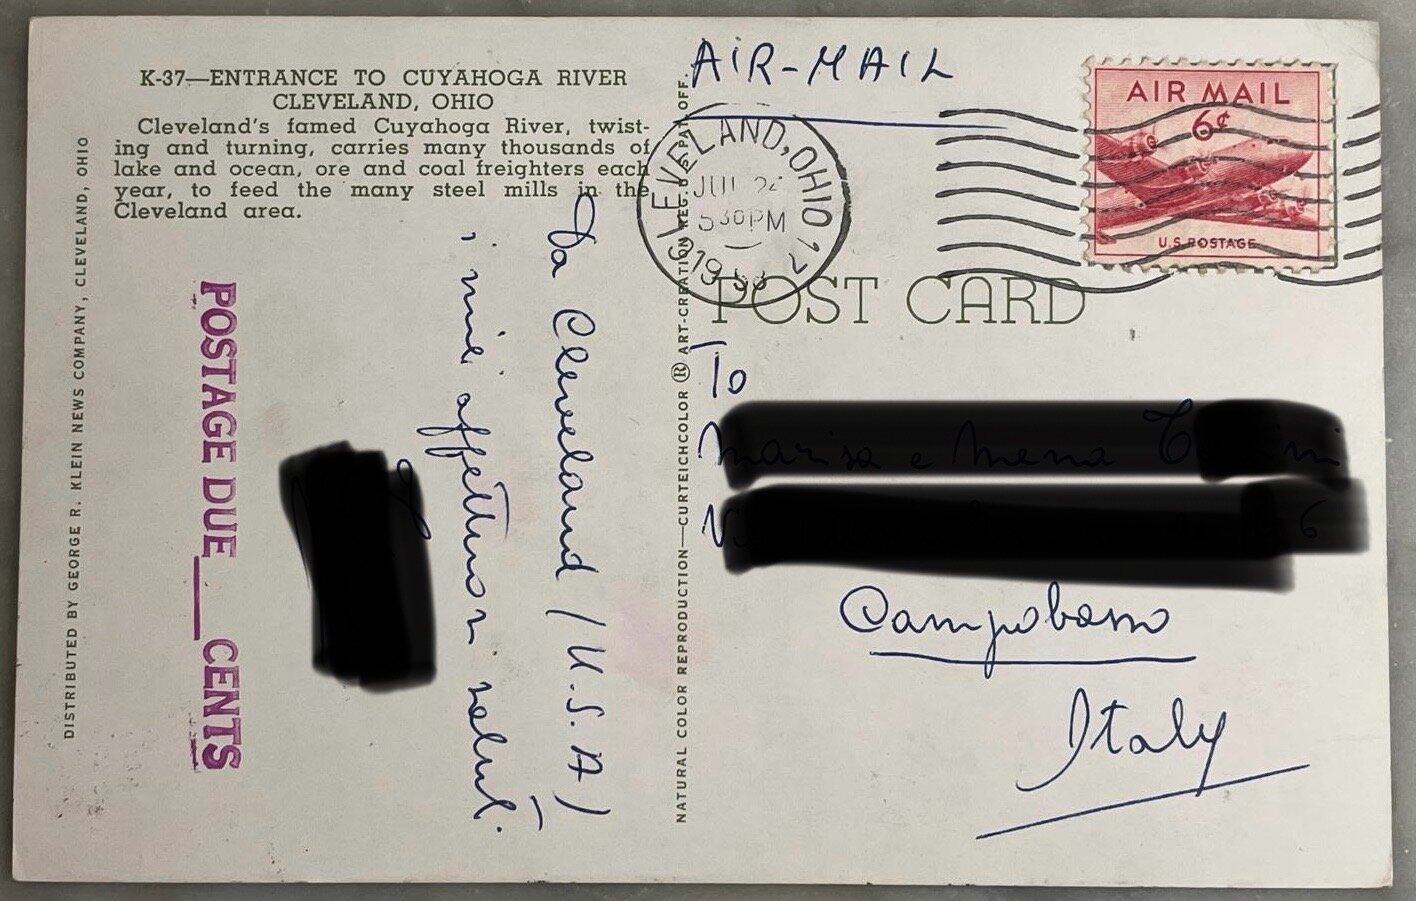 K-37—ENTRANCE TO CUYAHOGA RIVER
CLEVELAND, OHIO
Cleveland's famed Cuyahoga River, twist-
ing and turning, carries many thousands of
lake and ocean, ore and coal freighters each
year, to feed the many steel mills in the
Cleveland area.
DISTRIBUTED BY GEORGE R. KLEIN NEWS COMPANY, CLEVELAND, OHIO
POSTAGE DUE ___ CENTS
Da Cleveland (U.S.A)
i miei affettuosi saluti.
NATURAL COLOR REPRODUCTION—CURTEICHCOLOR ® ART-CREATION REG. U.S. PAT. OFF.
AIR-MAIL
CLEVELAND, OHIO 17
530PM
AIR MAIL
6¢
U.S. POSTAGE
POST CARD
To
Campobasso
Italy